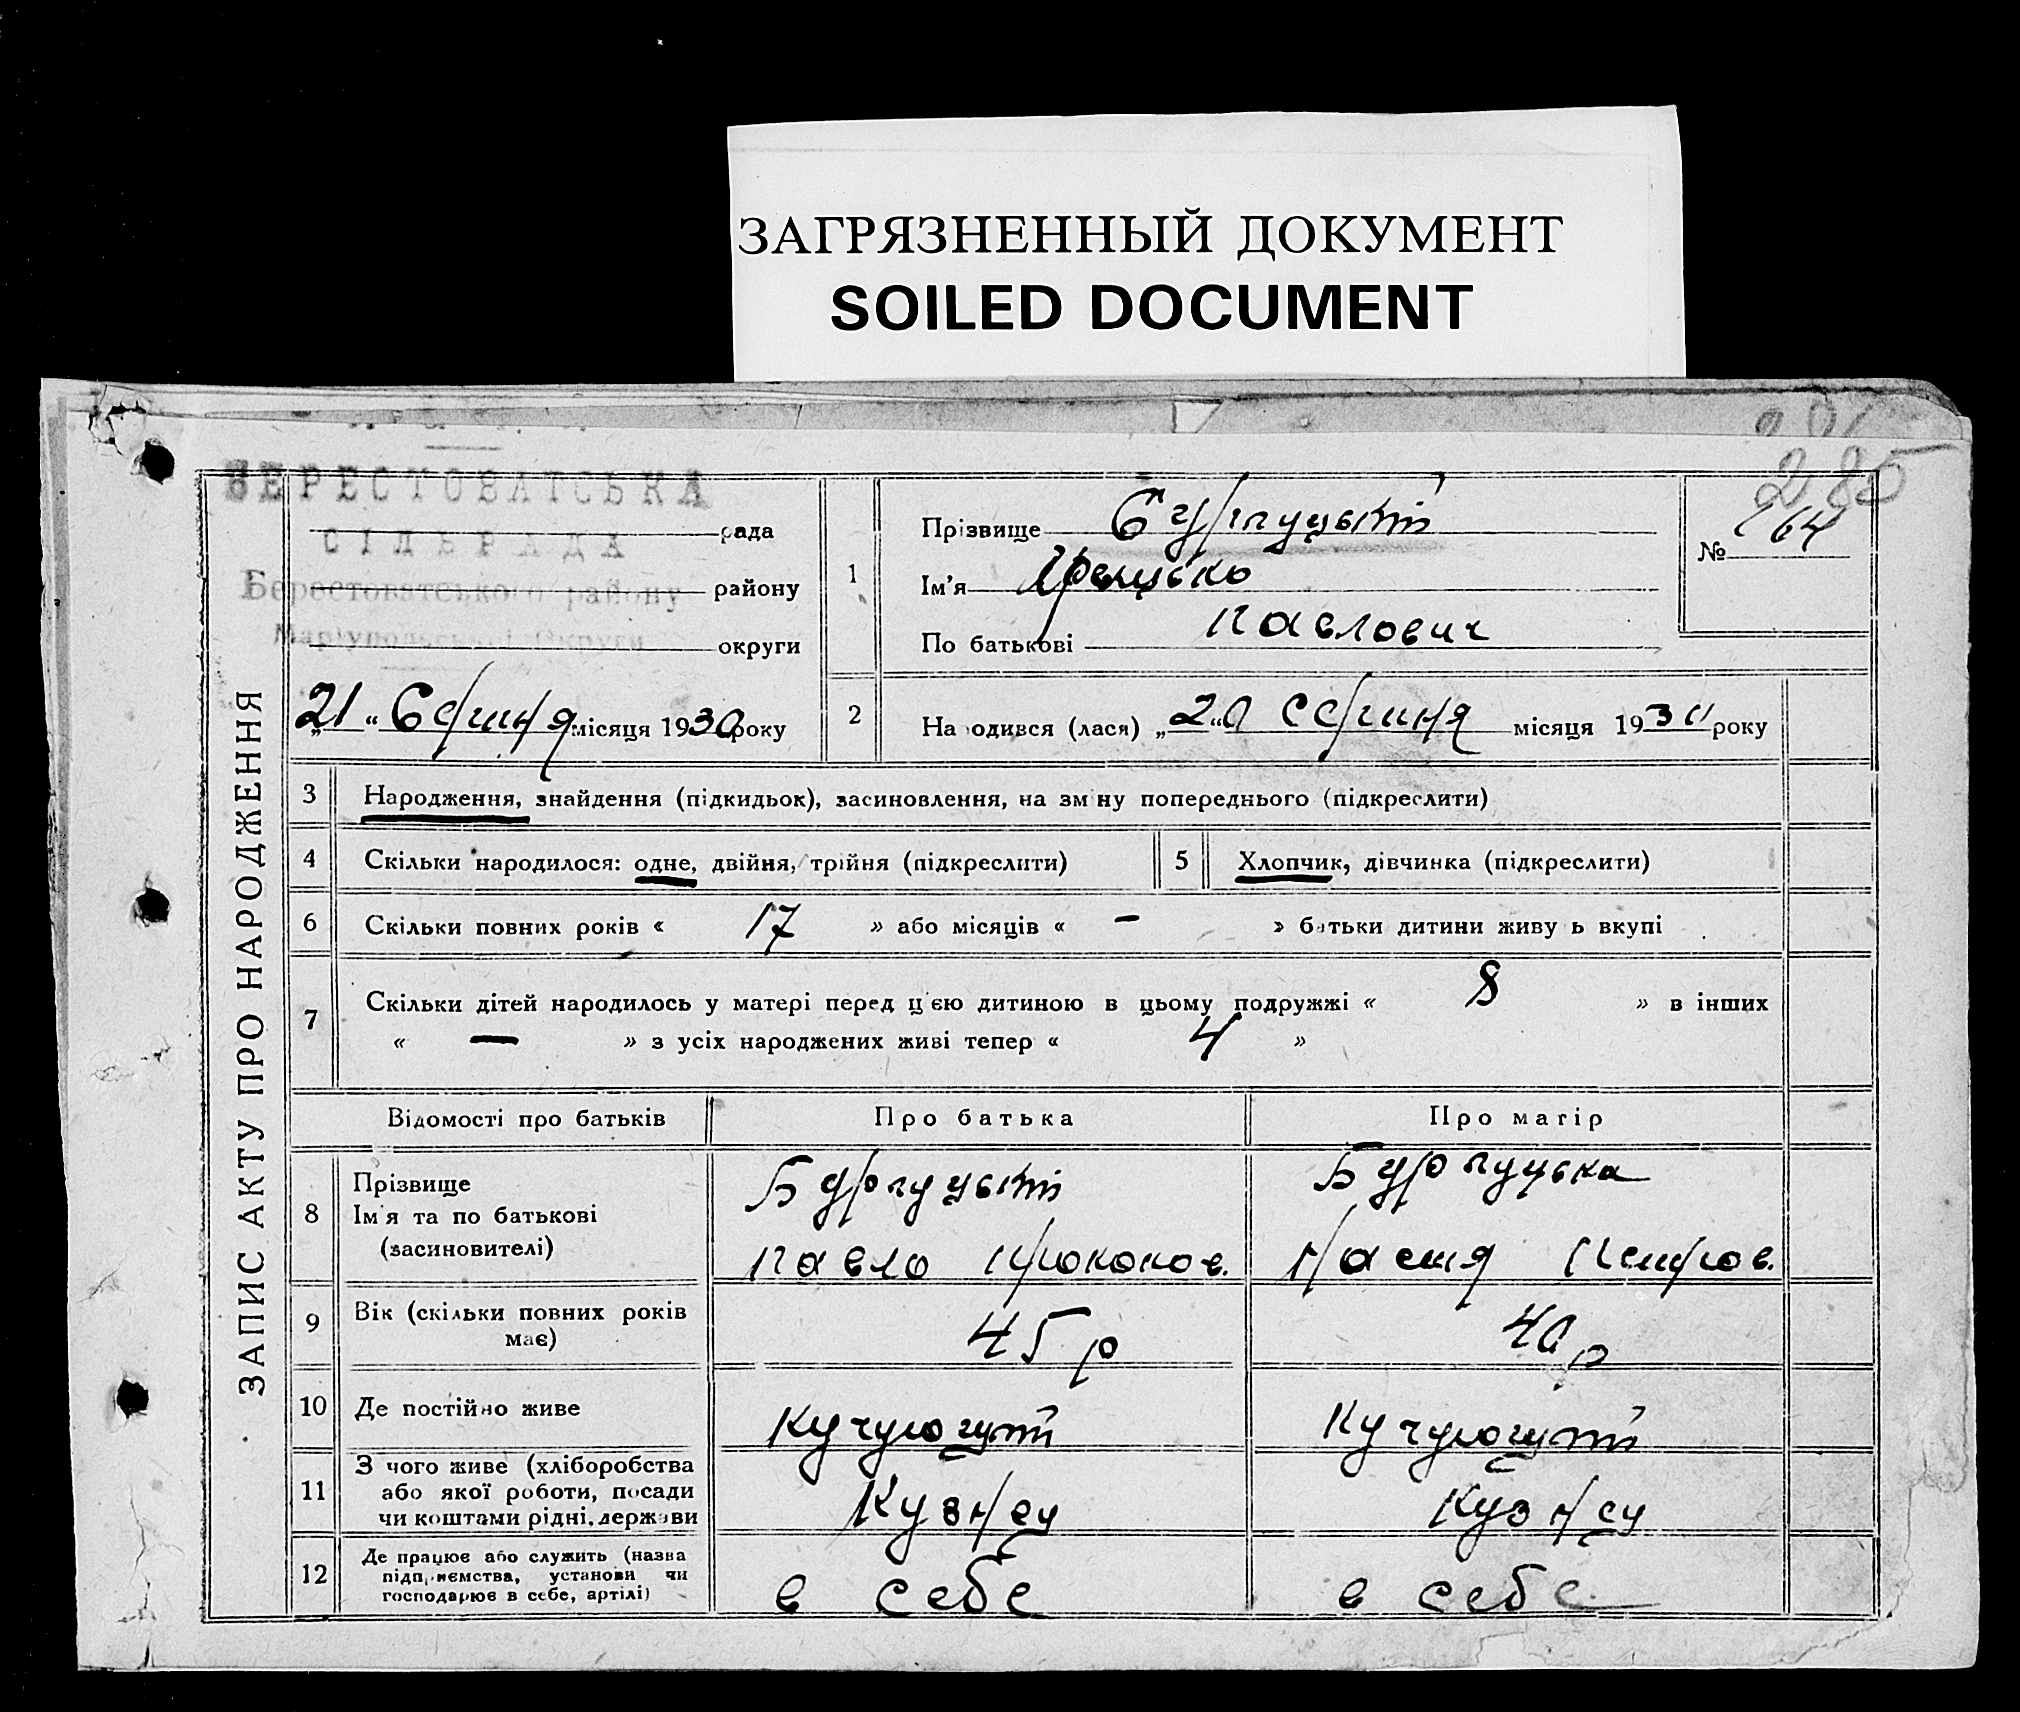 ЗАГРЯЗНЕННЫЙ ДОКУМЕНТ
SOILED DOCUMENT
285
БЕРЕСТОВАТСЬКА рада
СІЛЬРАДА
Берестоватського району району
Маріупольської Округи округи
„21“ Серпня місяця 1930 року
ЗАПИС АКТУ ПРО НАРОДЖЕННЯ
1 Прізвище
Ім'я Грицько
По батькові Павлович
№ 164
2 Народився (лася) „20 Серпня місяця 1930 року
3 Народження, знайдення (підкидьок), засиновлення, на зміну попереднього (підкреслити)
4 Скільки народилося: одне, двійня, трійня (підкреслити)
5 Хлопчик, дівчинка (підкреслити)
6 Скільки повних років « 17 » або місяців « — » батьки дитини живуть вкупі
7 Скільки дітей народилось у матері перед цією дитиною в цьому подружжі « 8 » в інших
« — » з усіх народжених живі тепер « 4 »
Відомості про батьків Про батька Про матір
8 Прізвище
Ім'я та по батькові
(засиновителі)
Павло Прокопов. Настя Петров.
9 Вік (скільки повних років
має)
45 р 40 р
10 Де постійно живе
11 З чого живе (хліборобства
або якої роботи, посади
чи коштами рідні, держави
12 Де працює або служить (назва
підприємства, установи чи
господарює в себе, артілі)
в себе в себе